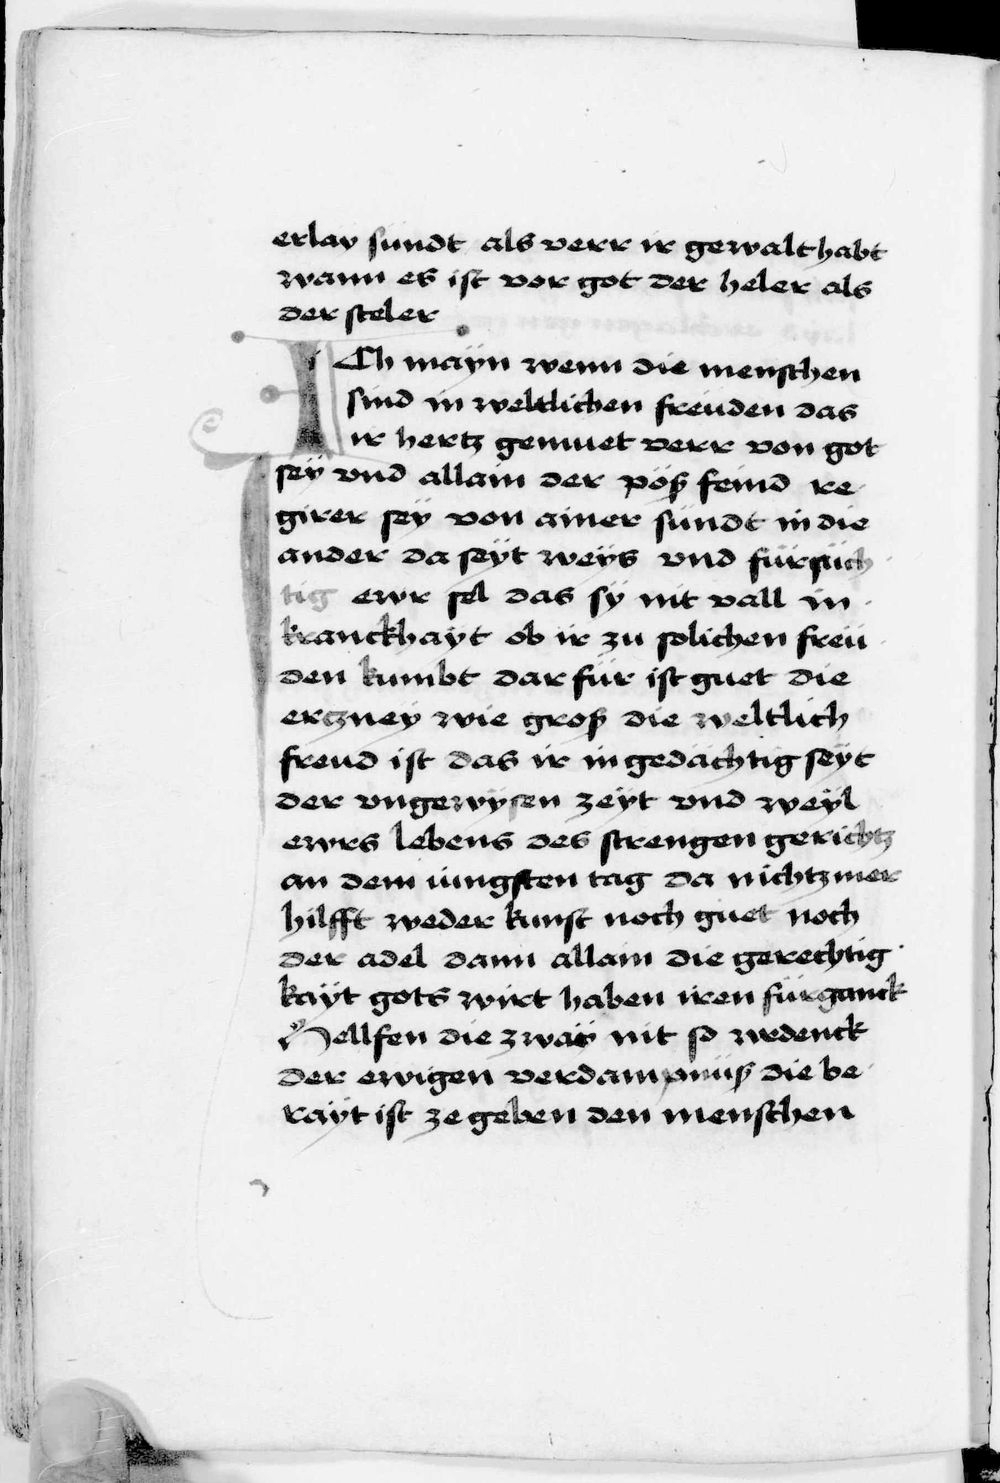 erlay sündt als verr ir gewalt habt
wann es ist vor got der heler als
der steler
ICh mayn wenn die menschen
sind in weltlichen freuden das
ir hertz gemuet verr von got
seÿ vnd allain der pöß feind re
girer seÿ von ainer sündt in die
ander da seÿt weÿs vnd fürsich
tig ewr sel das sÿ nit vall in
kranckhaÿt ob ir zu solichen freü
den kumbt dar für ist guet die
ertzneÿ wie groß die weltlich
freud ist das ir ingedächtig seÿt
der vngewÿsen zeÿt vnd weÿl
ewrs lebens des strengen gerichtz
an dem iüngsten tag da nichtz mer
hilfft weder kunst noch guet noch
der adel dann allain die gerechtig
kaÿt gots wirt haben iren fürganck
Hellfen die zwaÿ nit so wedenck
der ewigen verdampnüß die be
raÿt ist ze geben den menschen